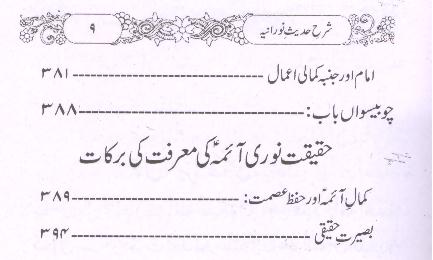 شرح حدیث نورانیہ ۹
امام اور جنبہ کمالی اعمال ---------------------------- ۳۸۱
چوبیسواں باب: ---------------------------- ۳۸۸
حقیقت نوری آئمہؑ کی معرفت کی برکات
کمالِ آئمہؑ اور حفظ عصمت: ---------------------------- ۳۸۹
بصیرتِ حقیقی ---------------------------- ۳۹۴